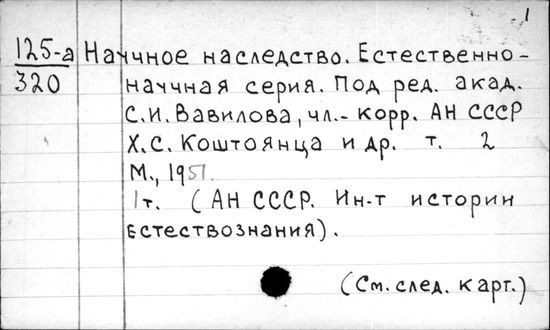 1
125-а Научное наследство. Естественно-
320 научная серия. Под ред. акад.
С.И. Вавилова, чл.-корр. АН СССР
Х.С. Коштоянца и др. т. 2
М., 1951.
1т. (АН СССР. Ин-т истории
естествознания).
(См. след. карт.)